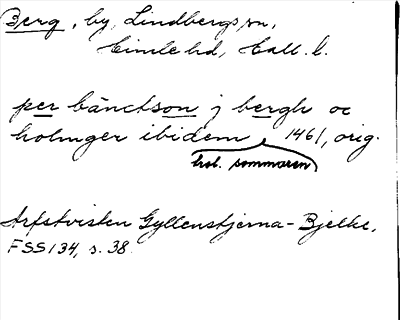 Berg, by, Lindbergs sn,
Himle hd, Hall. l.
per bänctson j bergh oc
holmger ibidem 1461, orig.
hal. sommaren
Arfstvisten Gyllenstjerna-Bjelke,
FSS 134, s. 38.